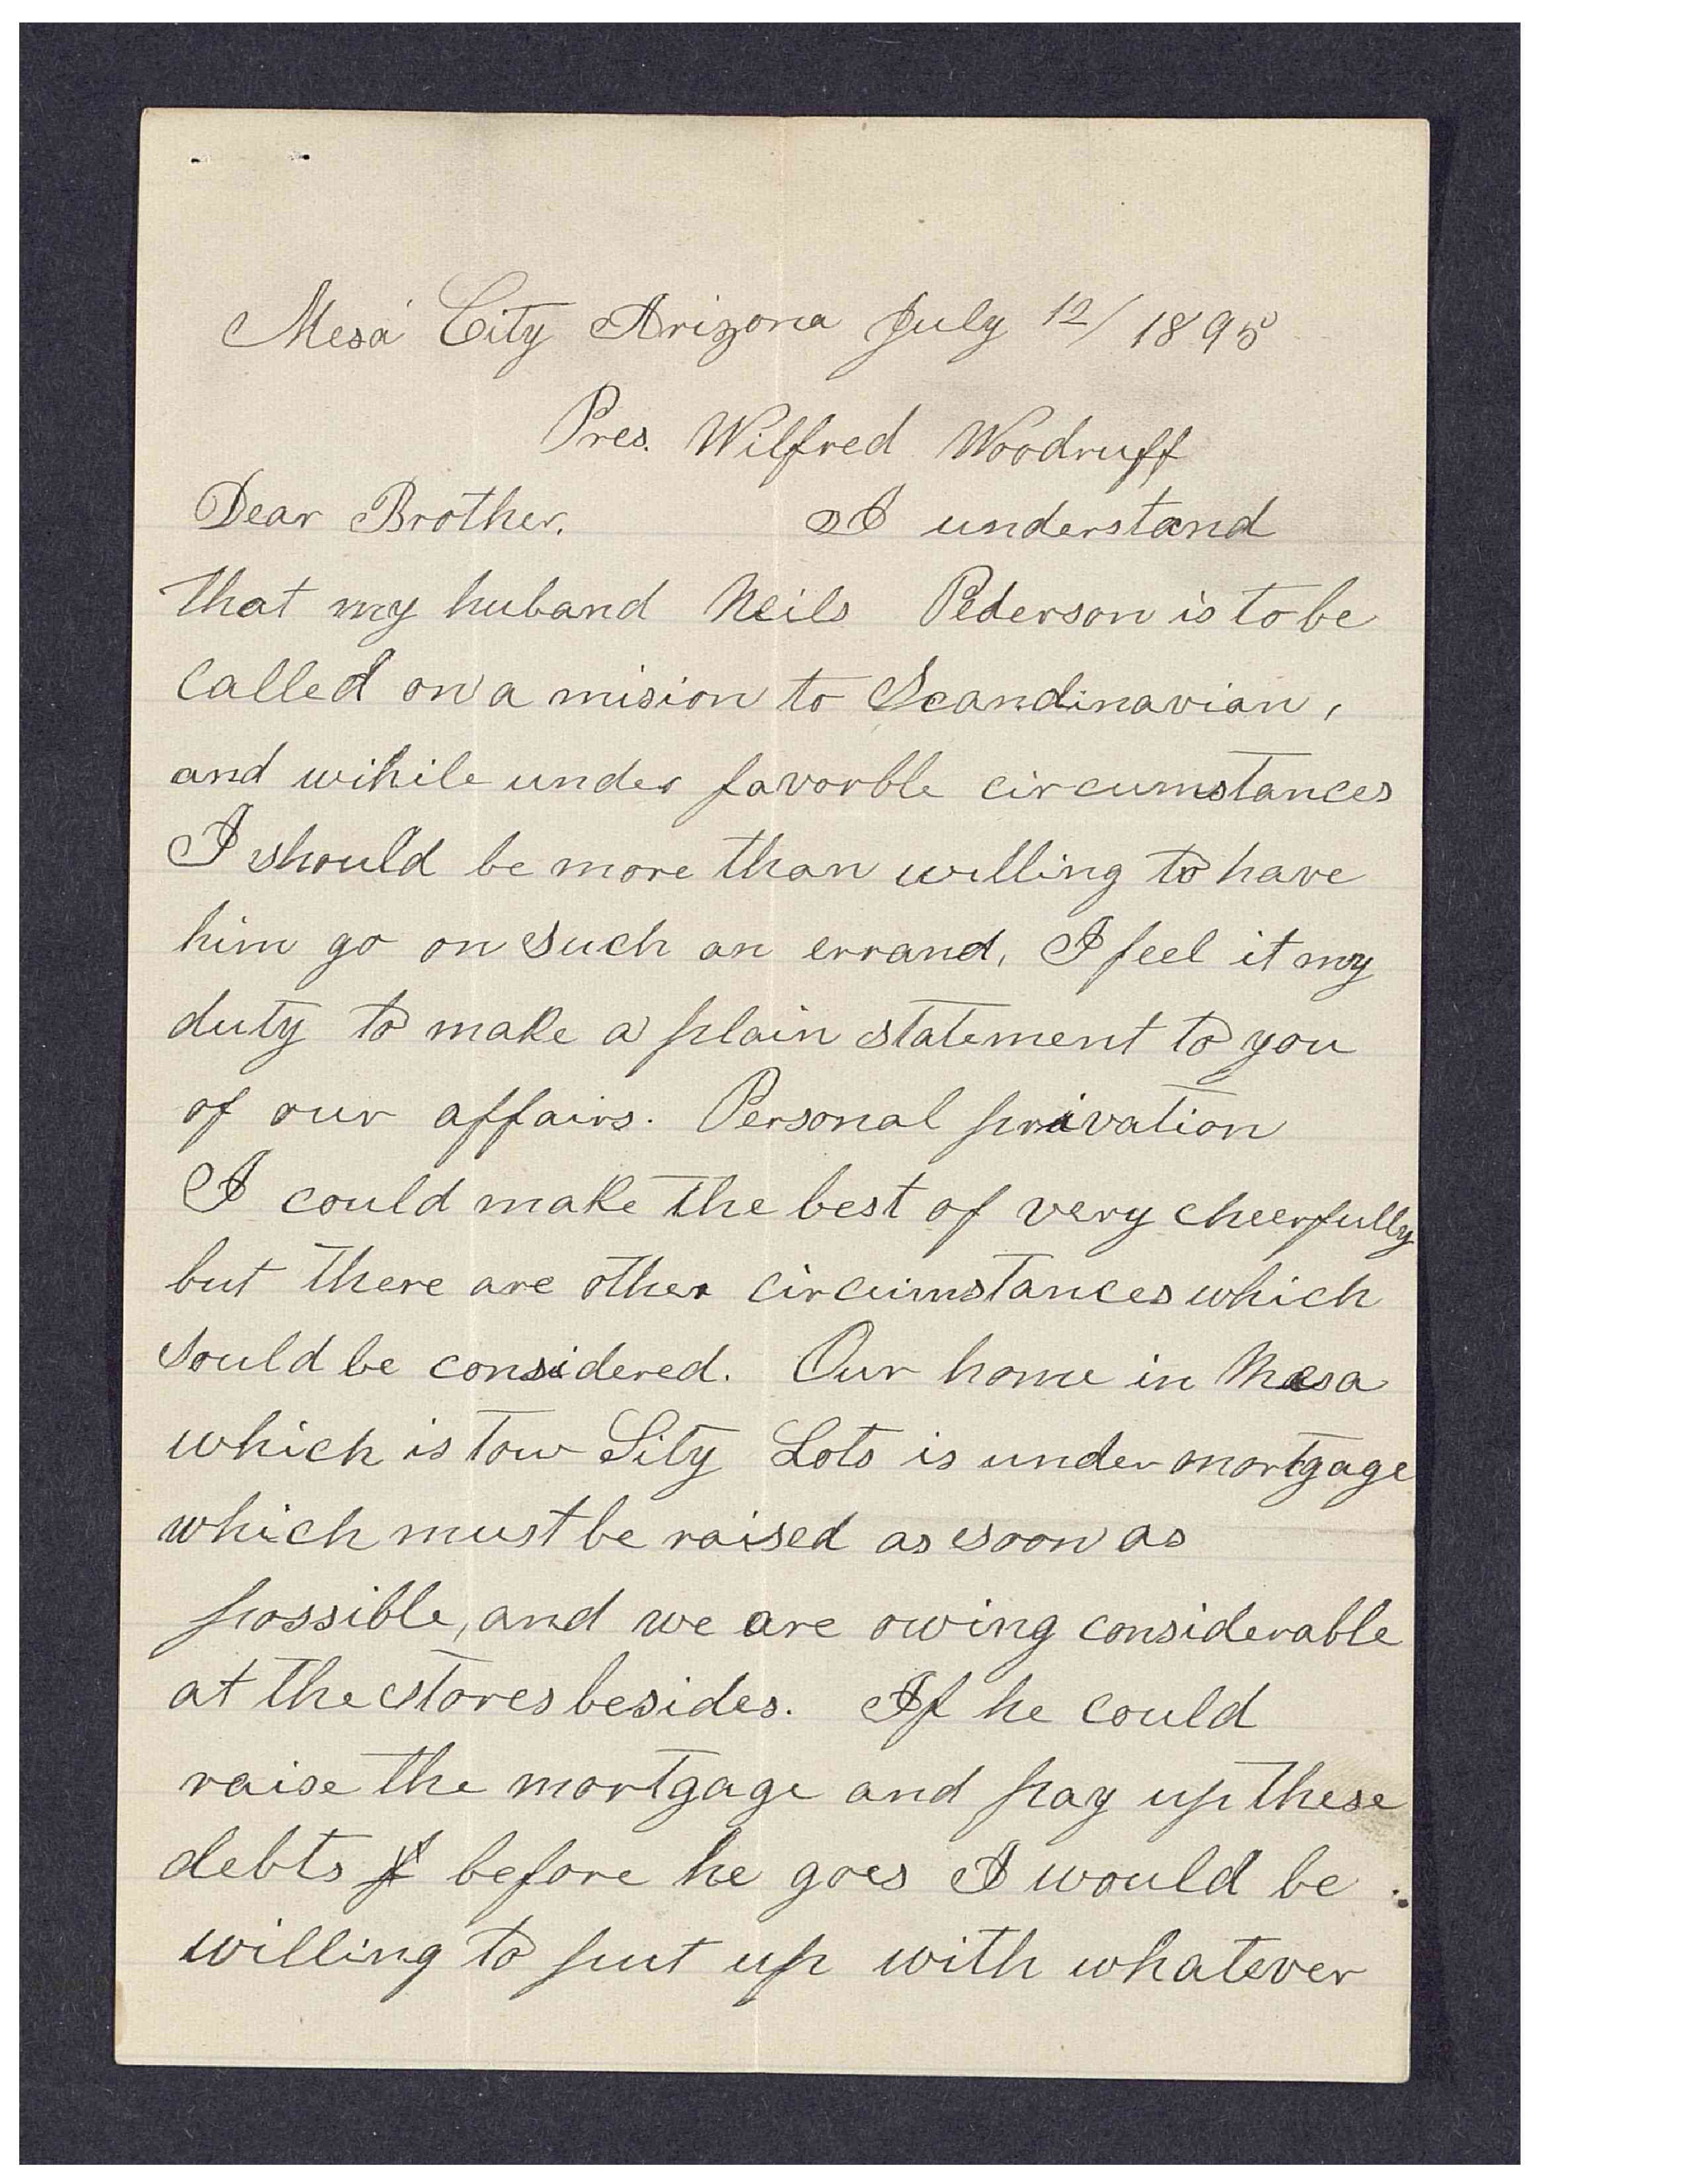 Mesa City Arizona July 12/ 1895
Pres. Wilfred Woodruff
Dear Brother. I understand
that my huband Neils Pederson is to be
called on a mision to Scandinavian,
and wihile under favorble circumstances
I should be more than willing to have
him go on such an errand, I feel it my
duty to make a plain statement to you
of our affairs. Personal privation
I could make the best of very cheerfully
but there are other circumstances which
sould be considered. Our home in Mesa
which is tow Sity Lots is under mortgage
which must be raised as soon as
possible, and we are owing considerable
at the stores besides. If he could
raise the mortgage and pay up these
debts before he goes I would be
willing to put up with whatever